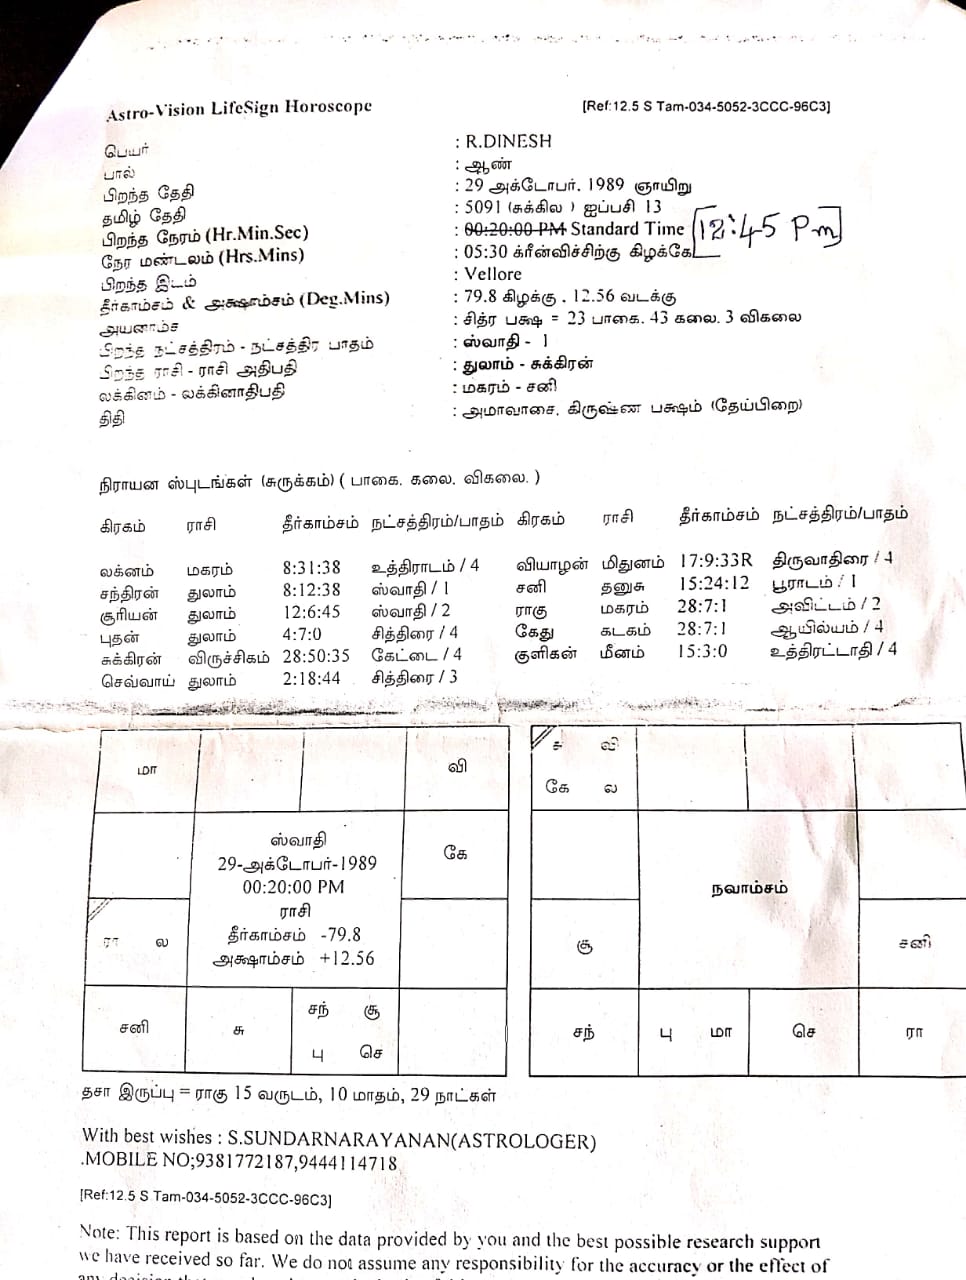 Astro-Vision LifeSign Horoscope [Ref:12.5 S Tam-034-5052-3CCC-96C3]
பெயர் : R.DINESH
பால் : ஆண்
பிறந்த தேதி : 29 அக்டோபர். 1989 ஞாயிறு
தமிழ் தேதி : 5091 (சுக்கில ) ஐப்பசி 13
பிறந்த நேரம் (Hr.Min.Sec) : 00:20:00 PM Standard Time 12:45 Pm
நேர மண்டலம் (Hrs.Mins) : 05:30 க்ரீன்விச்சிற்கு கிழக்கே
பிறந்த இடம் : Vellore
தீர்காம்சம் & அக்ஷாம்சம் (Deg.Mins) : 79.8 கிழக்கு . 12.56 வடக்கு
அயனாம்ச : சித்ர பக்ஷ = 23 பாகை. 43 கலை. 3 விகலை
பிறந்த நட்சத்திரம் - நட்சத்திர பாதம் : ஸ்வாதி - 1
பிறந்த ராசி - ராசி அதிபதி : துலாம் - சுக்கிரன்
லக்கினம் - லக்கினாதிபதி : மகரம் - சனி
திதி : அமாவாசை, கிருஷ்ண பக்ஷம் (தேய்பிறை)
நிராயன ஸ்புடங்கள் (சுருக்கம்) ( பாகை. கலை. விகலை. )
கிரகம் ராசி தீர்காம்சம் நட்சத்திரம்/பாதம் கிரகம் ராசி தீர்காம்சம் நட்சத்திரம்/பாதம்
லக்னம் மகரம் 8:31:38 உத்திராடம் / 4 வியாழன் மிதுனம் 17:9:33R திருவாதிரை / 4
சந்திரன் துலாம் 8:12:38 ஸ்வாதி / 1 சனி தனுசு 15:24:12 பூராடம் / 1
சூரியன் துலாம் 12:6:45 ஸ்வாதி / 2 ராகு மகரம் 28:7:1 அவிட்டம் / 2
புதன் துலாம் 4:7:0 சித்திரை / 4 கேது கடகம் 28:7:1 ஆயில்யம் / 4
சுக்கிரன் விருச்சிகம் 28:50:35 கேட்டை / 4 குளிகன் மீனம் 15:3:0 உத்திரட்டாதி / 4
செவ்வாய் துலாம் 2:18:44 சித்திரை / 3
மா வி
கே
ஸ்வாதி
29-அக்டோபர்-1989
00:20:00 PM
ராசி
தீர்காம்சம் -79.8
அக்ஷாம்சம் +12.56
ரா ல
சனி சு சந் சூ
பு செ
வி
கே ல
நவாம்சம்
சூ சனி
சந் பு மா செ ரா
தசா இருப்பு = ராகு 15 வருடம், 10 மாதம், 29 நாட்கள்
With best wishes : S.SUNDARNARAYANAN(ASTROLOGER)
.MOBILE NO;9381772187,9444114718
[Ref:12.5 S Tam-034-5052-3CCC-96C3]
Note: This report is based on the data provided by you and the best possible research support
we have received so far. We do not assume any responsibility for the accuracy or the effect of